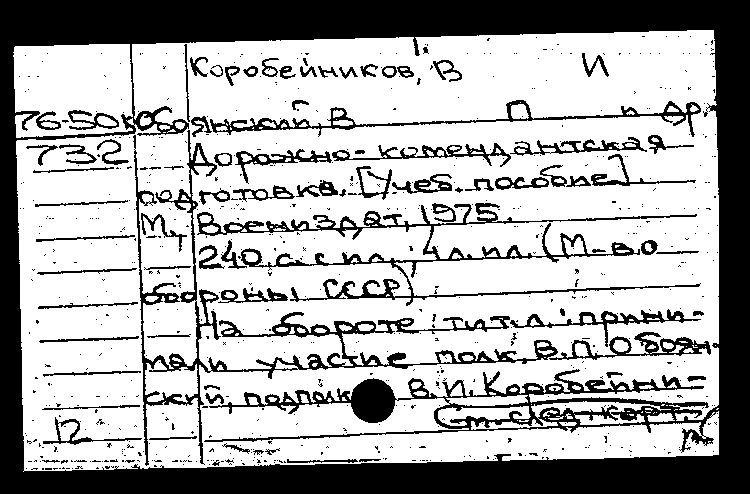 1.
Коробейников, В И
76-50к Обоянский, В П и др.
73.2 Дорожно-комендантская
подготовка. [Учеб. пособие].
М., Воениздат, 1975.
240 с. с ил.; 4 л. ил. (М-во
обороны СССР).
На обороте тит. л.: прини-
мали участие полк. В.П. Обоян-
ский, подполк. В.И. Коробейни-
См. след. карт.
12